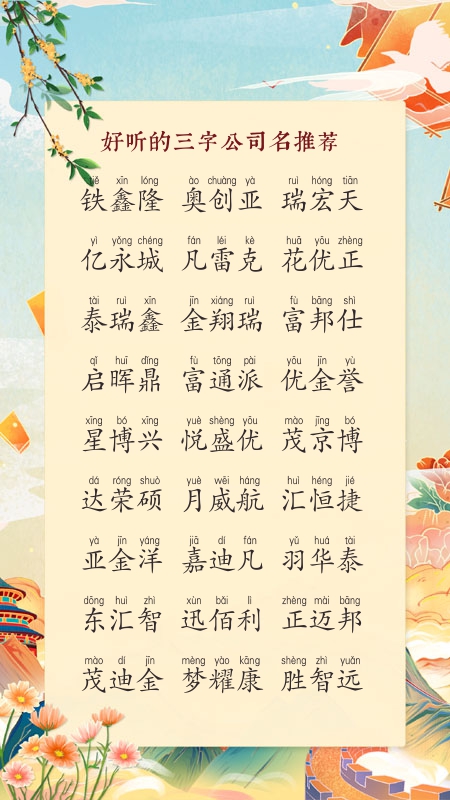 好听的三字公司名推荐
tiě xīn lóng ào chuàng yà ruì hóng tiān
铁鑫隆 奥创亚 瑞宏天
yì yǒng chéng fán léi kè huā yōu zhèng
亿永城 凡雷克 花优正
tài ruì xīn jīn xiáng ruì fù bāng shì
泰瑞鑫 金翔瑞 富邦仕
qǐ huī dǐng fù tōng pài yōu jīn yù
启晖鼎 富通派 优金誉
xīng bó xīng yuè shèng yōu mào jīng bó
星博兴 悦盛优 茂京博
dá róng shuò yuè wēi háng huì héng jié
达荣硕 月威航 汇恒捷
yà jīn yáng jiā dí fán yǔ huá tài
亚金洋 嘉迪凡 羽华泰
dōng huì zhì xùn bǎi lì zhèng mài bāng
东汇智 迅佰利 正迈邦
mào dí jīn mèng yào kāng shèng zhì yuǎn
茂迪金 梦耀康 胜智远